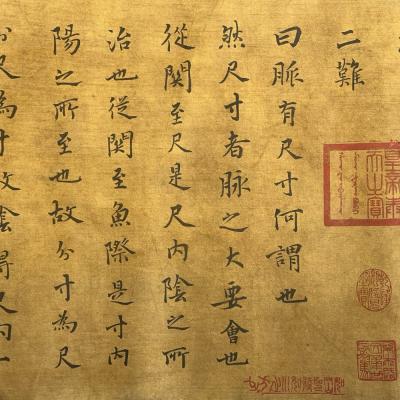 二難
曰脈有尺寸何謂也
然尺寸者脈之大要會也
從關至尺是尺內陰之所
治也從關至魚際是寸內
陽之所至也故分寸為尺
分尺為寸故陰得尺內一